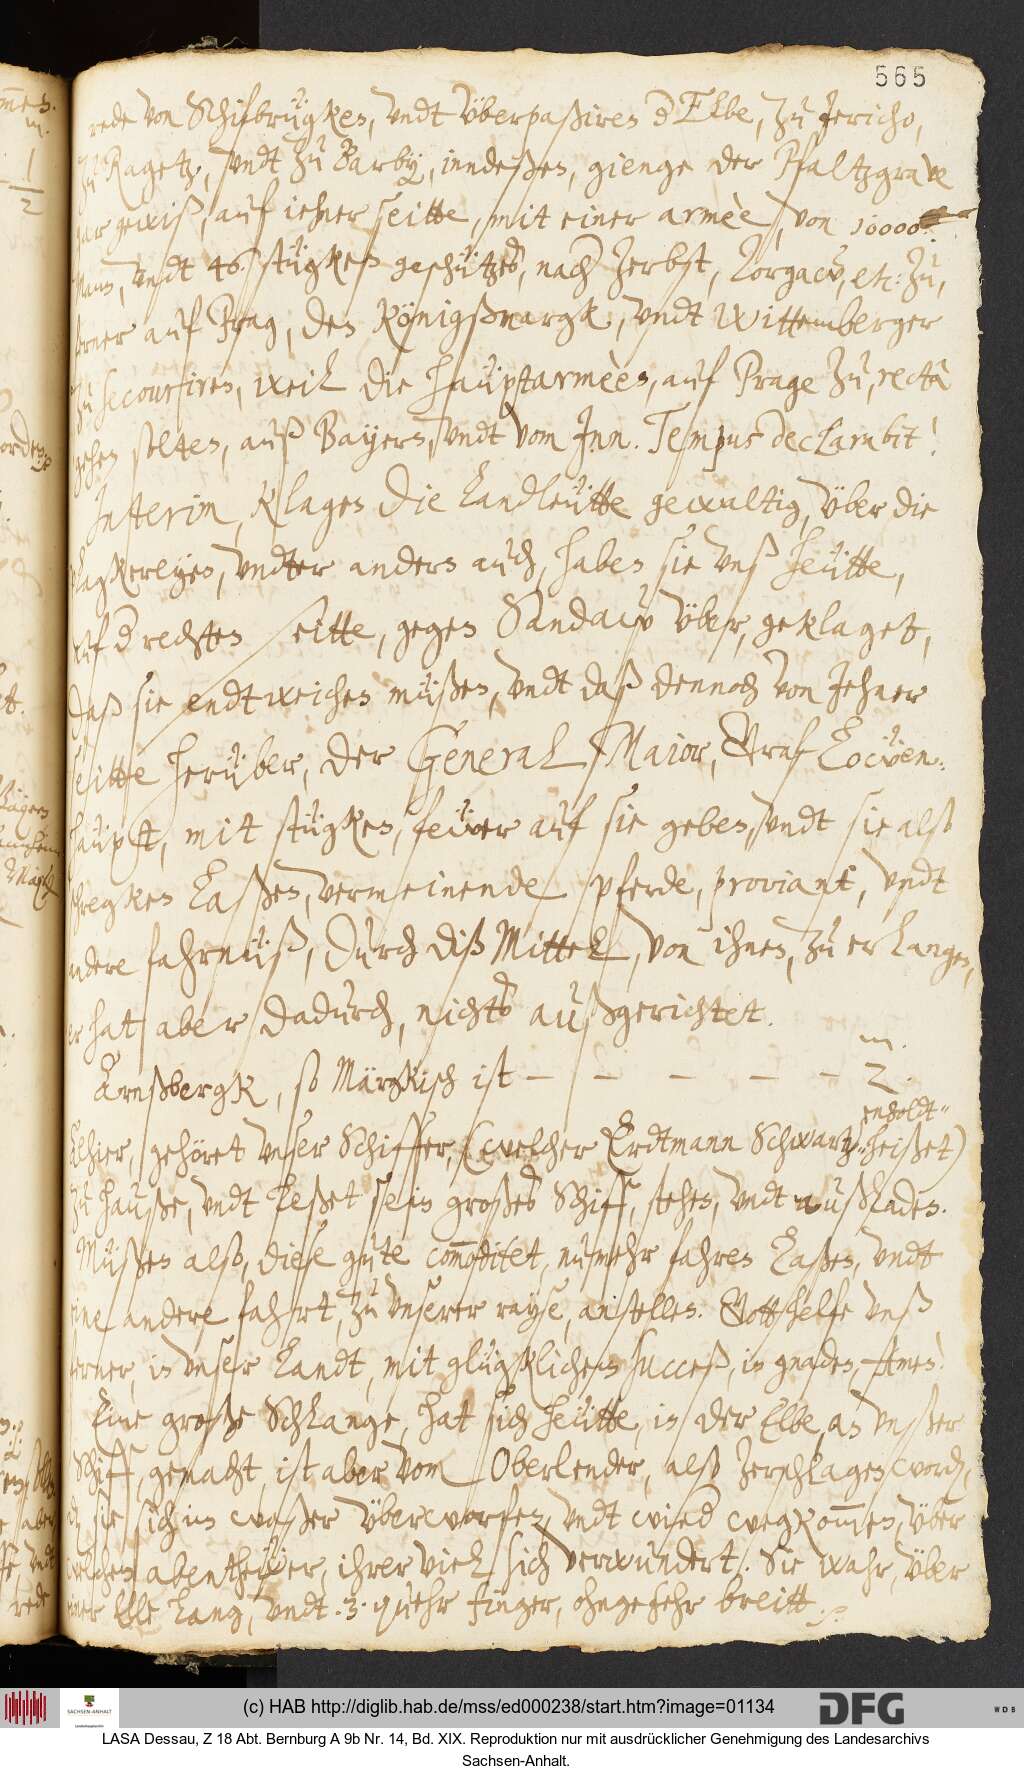 565
rede von Schifbrügken, undt überpaßiren der Elbe, zu Jericho,
zu Ragetz, undt zu Barby, inndeßen, gienge der Pfaltzgrave
gar gewiß, auf iehner seitte, mit einer armèe, von 10000
Mann, undt 46 stügken geschützes, nach Zerbst, Torgaw, etc: zu,
ferner auf Prag, den Königßmargk, undt Wittemberger
zu secouriren, weil die hauptarmèen, auf Prage zu, recta
gehen solten, auß Bayern, undt vom Inn. Tempus declarabit!
Interim, klagen die Landleütte gewaltig, über die
plagkereyen, undter andern auch, haben sie unß heütte,
auf der rechten seitte, gegen Sandaw über, geklaget,
daß sie endtweichen müßen, undt daß dennoch von Jehner
seitte herüber, der General Maior, Graf Löwen-
haupt, mit stügken, feüwer auf sie geben, undt sie also
schregken laßen, vermeinende pferde, proviant, undt
andere fahrnüß, durch diß Mittel, von ihnen, zu erlangen,
er hat aber dadurch, nichts außgerichtet.
Arnßbergk, so Märgkisch ist – – – – – 2
m.
Alhier, gehöret unser Schiffer, (welcher Erdtmann Schwartz-
enholdt-
heißet)
zu hauße, undt leßet sein großes Schiff, stehen, undt außladen.
Müßen also, diese gute commoditet, numehr fahren laßen, undt
eine andere fahrt, zu unserer rayse, anstellen. Gott helfe unß
ferner, in unser Landt, mit glügklichem success, in gnaden, Amen!
Eine große Schlange, hat sich heütte, in der Elbe, an unßer
Schiff, gemacht, ist aber vom Oberlender, also zerschlagen worden,
daß sie sich im waßer überworfen, undt wieder wegkommen, über
welchem abentheüer, ihrer viel sich verwundert. Sie wahr, über
einer Elle lang, undt .3. quehr finger, ohngefehr breitt.
(c) HAB http://diglib.hab.de/mss/ed000238/start.htm?image=01134
SACHSEN-ANHALT
DFG
WDB
LASA Dessau, Z 18 Abt. Bernburg A 9b Nr. 14, Bd. XIX. Reproduktion nur mit ausdrücklicher Genehmigung des Landesarchivs
Sachsen-Anhalt.